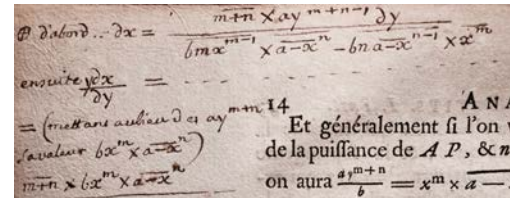 d'abord... dx = m+n × ay^m+n-1 dy
bmx^m-1 × a-x^n - bn a-x^n-1 × x^m
ensuite ydx/dy =
= (mettant au lieu de ay^m+n
sa valeur bx^m × a-x^n)
m+n × bx^m × a-x^n
14 ANA
Et généralement ſi l'on v
de la puiſſance de A P, & n
on aura ay^m+n/b = x^m × a —